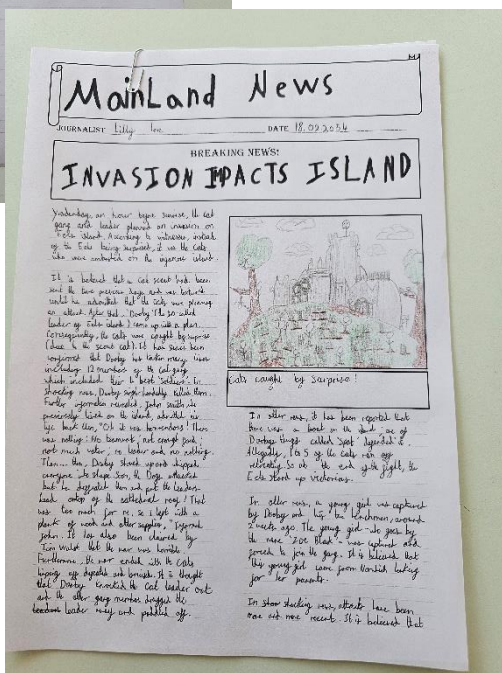 MainLand News
JOURNALIST Lilly Lee DATE 18.02.2034
BREAKING NEWS:
INVASION IMPACTS ISLAND
Yesterday, an hour before sunrise, the cat
gang and leader planned an invasion on
Eels island. According to witnesses, instead
of the Eels being surprised, it was the Cats
who were ambushed on the island.
It is believed that a cat scout had been
sent the two previous days and was tortured
until he admitted that the cats were planning
an attack. After that, Dooby the so called
leader of Eels island came up with a plan.
Consequently, the cats were caught by surprise
(due to the scout cat). It has since been
confirmed that Dooby has taken many lives
including 12 members of the cat gang
which included their 10 best 'soldiers'. In
shocking news, Dooby single-handedly killed them.
Further information revealed, John Smith, who
previously lived on the island, admitted his
life back then, "Oh it was horrendous! There
was nothing: No teamwork, not enough food,
not much water, no leader and no nothing.
Then... then, Dooby stood up and whipped
everyone into shape. Soon, the Dogs attacked
but he defeated them and put the leaders
head ontop of the cathedral roof! That
was too much for me, so I left with a
plank of wood and other supplies,"
John. It has also been claimed by
that the war was horrible.
Furthermore, the war ended with the Cats
off defeated and bruised. It is thought
that Dooby knocked the Cat leader out
and the other gang members dragged the
leader away and paddled off.
Cats caught by Surprise!
In other news, it has been reported that
there was a on the island, one of
Doobys things called 'Spot'
Allegedly, 1 to 5 of the Cats ran off
retreating. So at the end of the fight, the
Eels stood up victorious.
In other news, a young girl was captured
by Dooby and his two henchmen, around
2 weeks ago. The young girl - who goes by
the name 'Zoe Black' - was captured and
forced to join the gang. It is believed that
this young girl came from Norwich looking
for her parents.
In shocking news, attacks have been
more and more recent. It is believed that